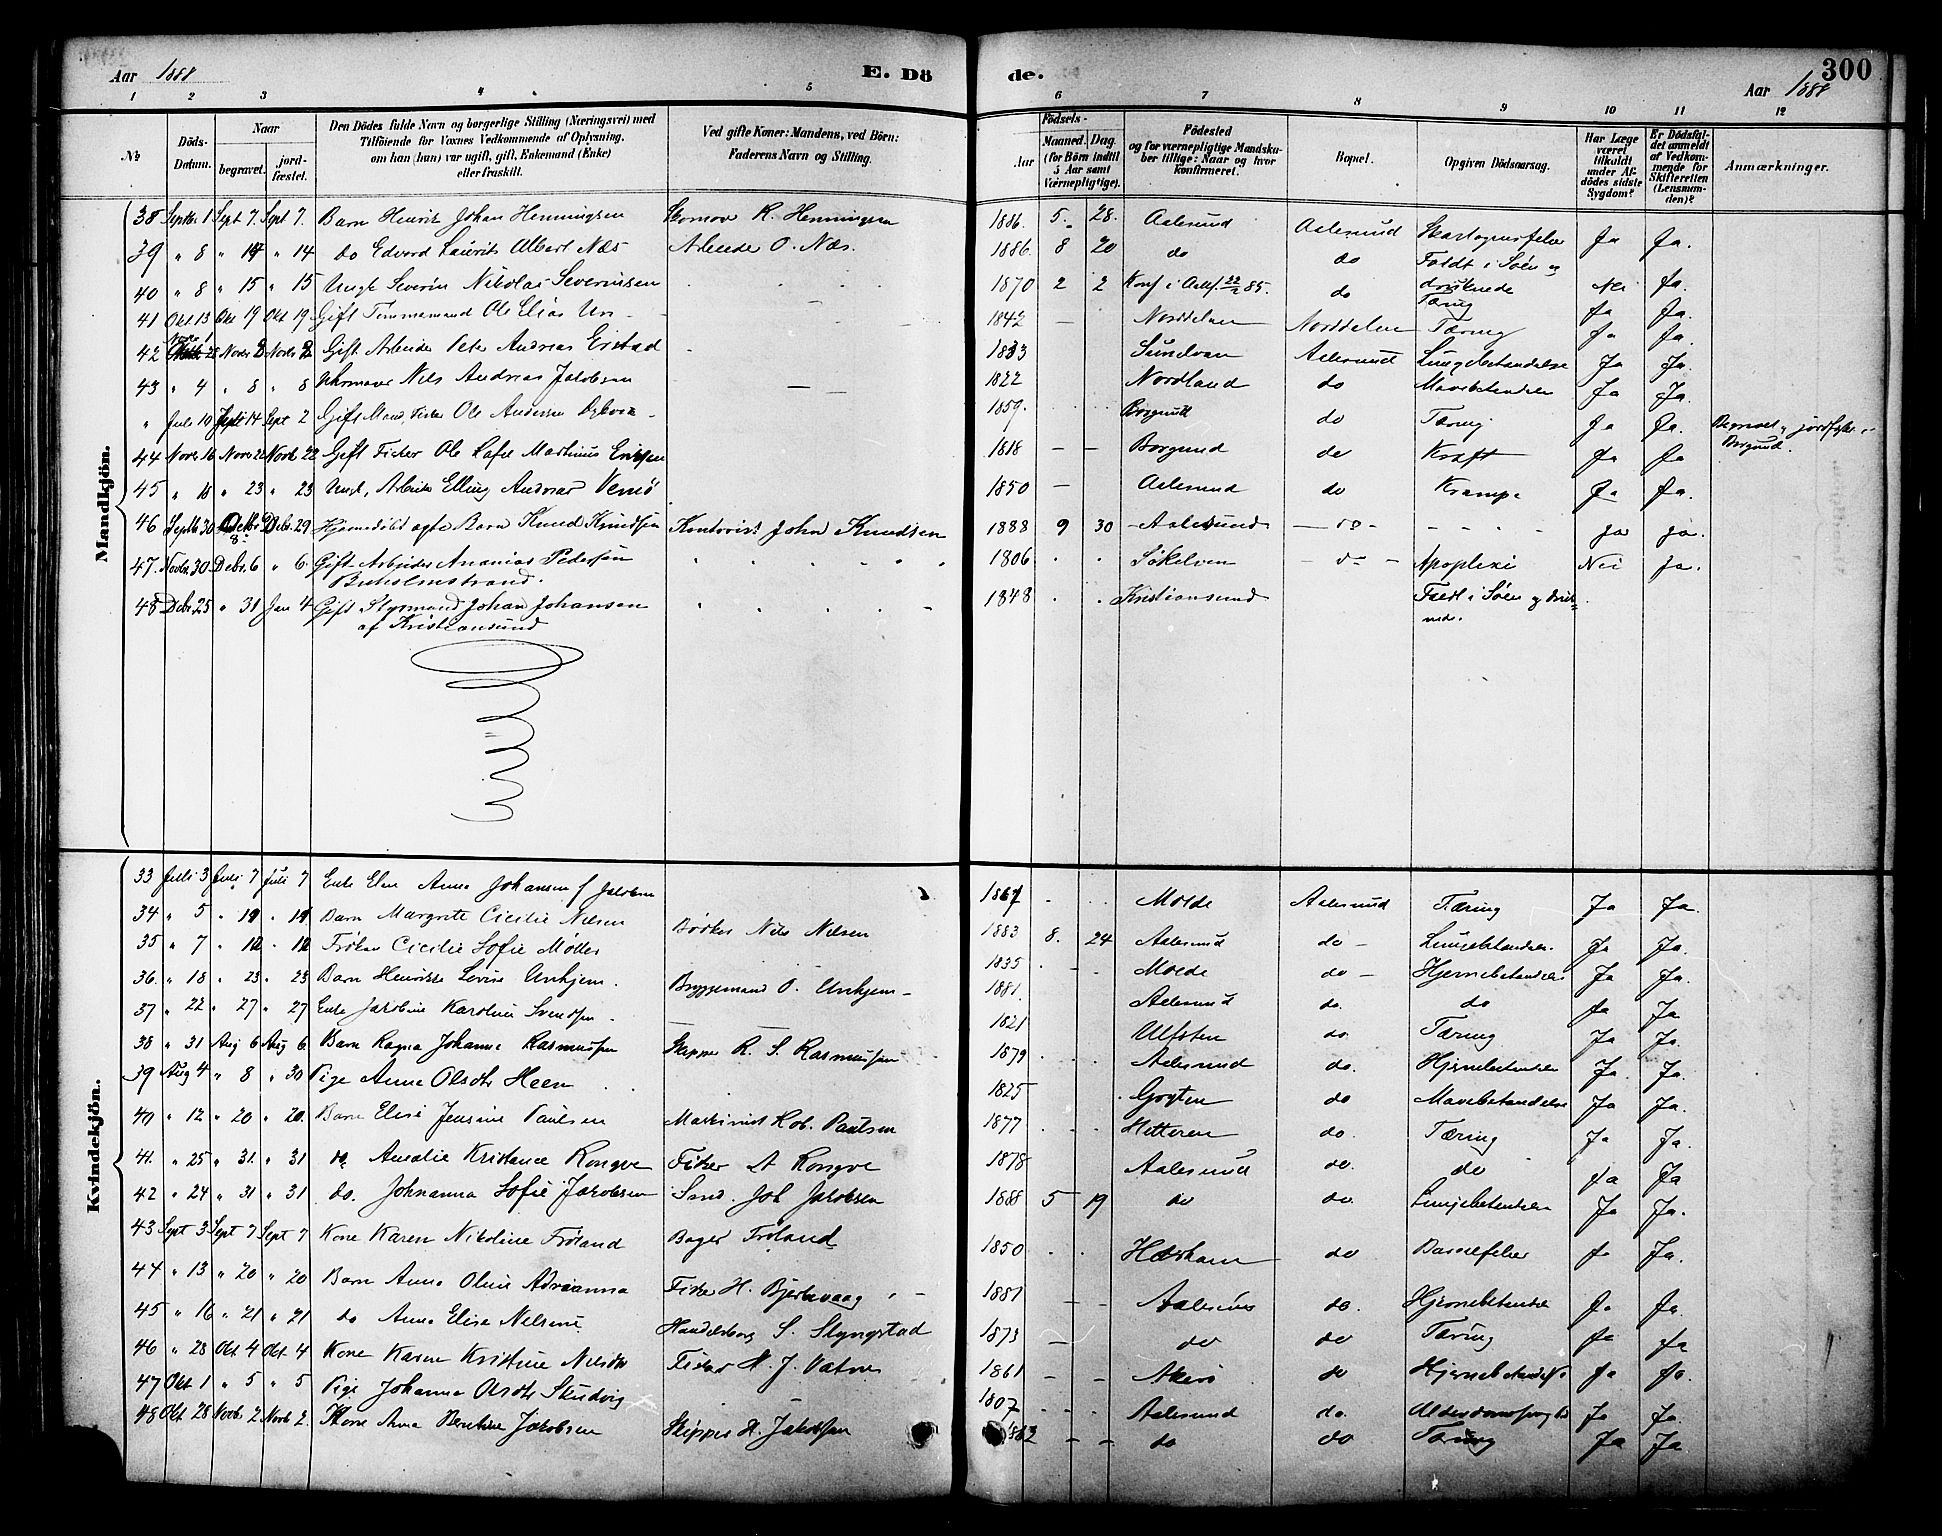 Aar 1888
E. Dö
de.
300
Aar 1888
1 2 3 4 5 6 7 8 9 10 11 12
№
Döds-Datum.
Naar
begravet.
jord-fæstet.
Den Dödes fulde Navn og borgerlige Stilling (Næringsvei) med
Tilföiende for Voxnes Vedkommende af Oplysning,
om han (hun) var ugift, gift, Enkemand (Enke)
eller fraskilt.
Ved gifte Koner: Mandens, ved Börn:
Faderens Navn og Stilling.
Födsels-
Aar
Maaned. Dag.
(for Börn indtil
5 Aar samt
Værnepligtige).
Födested
og for værnepligtige Mandsku-
ber tillige: Naar og hvor
konfirmeret.
Bopæl.
Opgiven Dödsaarsag.
Har Læge
været
tilkaldt
under Af-
dödes sidste
Sygdom?
Er Dödsfal-
det anmeldt
af Vedkom-
mende for
Skifteretten
(Lensman-
den)?
Anmærkninger.
Mandkjön.
38 Septbr 1 Sept 7. Sept 7. Barn Henrik Johan Henningsen R. Henningsen 1886. 5. 28. Aalesund Aalesund Ja Ja.
39 " 8 " 14 " 14 do Edvard Laurits Albert Næs Arbeider O. Næs. 1886. 8 20 do do Ja Ja.
40 " 8 " 15 " 15 Ungk Severin Nikolai Severinsen 1870 2 2 Konf i 85. do Faldt i Söen og druknede Nei Ja.
41 Okt 13 Okt 19 Okt 19 Gift Tømmermand Ole Elias 1842 — Norddalen Norddalen Tæring Ja Ja.
42 Novbr 1 Novbr 8 Novbr 8 Gift Arbeider Peter Andreas Erstad 1833 Sundven Aalesund Lungebetændelse Ja Ja.
43 " 4 " 8 " 8 Nils Andreas Jacobsen 1822 Nordland do Mavebetændelse Ja Ja.
" Juli 10 14 Sept 2 Gift Mand, Fisker Ole Andersen 1859. Borgund do Tæring Ja Ja. Begravet og jordfæstet i Borgund.
44 Novbr 16 Novbr 22 Novbr 22 Gift Fisker Ole Martinus 1818 — — Borgund do Kræft Ja Ja
45 " 18 " 23 " 23 Ungk. Arbeider Elling Andreas 1850 — Aalesund do Krampe Ja Ja.
46 Septbr 30 Debr. 29 Hjemmedøbt ægte Barn Knud Knudsen Kontorist John Knudsen 1888 9 30 Aalesund do ja ja.
47. Novbr. 30 Debr. 6 " 6. Gift Arbeider Ananias Pedersen 1806 Søkelven do Apoplexi Nei Ja.
Buholmstrand.
48 Debr. 25 " 31 Jan 4 Gift Styrmand Johan Johansen 1848 Kristiansund Faldt i Söen og
af Kristiansund
Kvindekjön.
33 Juli 3 Juli 7 Juli 7 Enke Anna Johansen f Jacobsen Molde Aalesund Tæring Ja Ja.
34 " 5 " 11 " 11 Barn Margrete Cicilie Nilsen Bødker Nils Nilsen 1883 8. 24 Aalesund do Lungebetændelse Ja Ja.
35 " 7 " 12 " 12 Frøken Cicilie Sofie Møller 1835 Molde do Hjernebetændelse Ja Ja.
36. " 18 " 23 " 23 Barn Henrikke Lovise Unhjem. Bryggemand O. Unhjem 1881. Aalesund do. do Ja Ja
37 " 22 " 27 " 27 Enke Jacobine Karoline Svendsen 1821 Ulfsten do. Tæring Ja Ja.
38 " 31 Aug 6 Aug 6. Barn Ragna Johanna Rasmussen Skipper R. S. Rasmussen 1879 Aalesund do. Hjernebetændelse Ja Ja.
39 Aug 4 " 8 " 30 Pige Anne Olsdtr Heen 1825 Grytten do Mavebetændelse Ja Ja.
40 " 12 " 20 " 20. Barn Elise Jensine Paulsen Maskinist Rob. Paulsen 1877 Hitteren do. Tæring Ja Ja.
41. " 25 " 31. " 31 do. Amalie Kristance Rongve Fisker A Rongve 1878 Aalesund do. do Ja Ja
42 " 24 " 31 " 31 do. Johnanna Sofie Jacobsen Joh Jacobsen 1888 5 19 do do. Lungebetændelse Ja Ja.
43 Sept 3 Sept 7 Sept 7 Kone Karen Nikoline Frøland Bager Frøland 1850 do Barselfeber Ja Ja.
44 " 13 " 20 " 20 Barn Anna Oline Adrianna Fisker H. Bjerkvaag 1881 Aalesund do. Hjernebetændelse Ja Ja.
45 " 16 " 21 " 21 do Anna Elise Nilsine Handelsborg S. Slyngstad 1873 do do Tæring Ja Ja
46 " 28 Okt 4 Okt 4 Kone Karen Kristine Nilsdtr Fisker J. Vatne 1861 Akerø do Hjernebetændelse Ja Ja.
47 Okt 1 " 5 " 5 Pige Johanna Olsdtr 1807 Aalesund do. Ja Ja.
48 Okt 28 Novbr 2 Novbr 2. Kone Anna Berntine Jacobsen Skipper Jakobsen do do Tæring Ja Ja